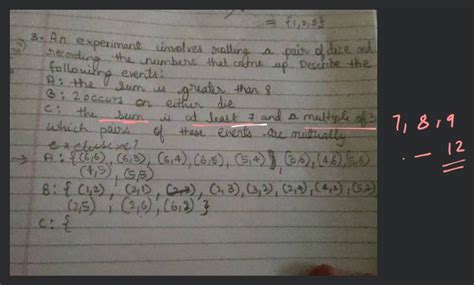 = {1,2,3}
3. An experiment involves rolling a pair of dice and
recording the numbers that come up. Describe the
following events:
A: the sum is greater than 8
B: 2 occurs on either die
C: the sum is at least 7 and a multiple of 3
which pairs of these events are mutually
exclusive?
→ A: {(6,6), (6,3), (6,4), (6,5), (5,4)}, (3,6), (4,6), (5,6)
(4,5), (5,5)
B: { (1,2), (2,1), (2,3), (3,2), (2,4), (4,2), (5,2)
(2,5), (2,6), (6,2) }
C: {
7, 8, 9
- 12